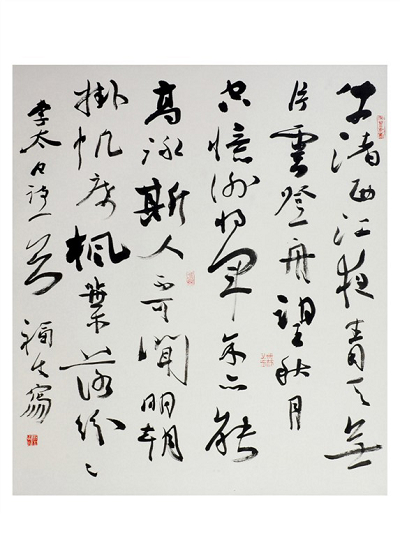 牛渚西江夜青天無
片雲登舟望秋月
空憶謝将軍余亦能
高詠斯人不可聞明朝
掛帆席楓葉落紛々
李太白詩一首 福生寫